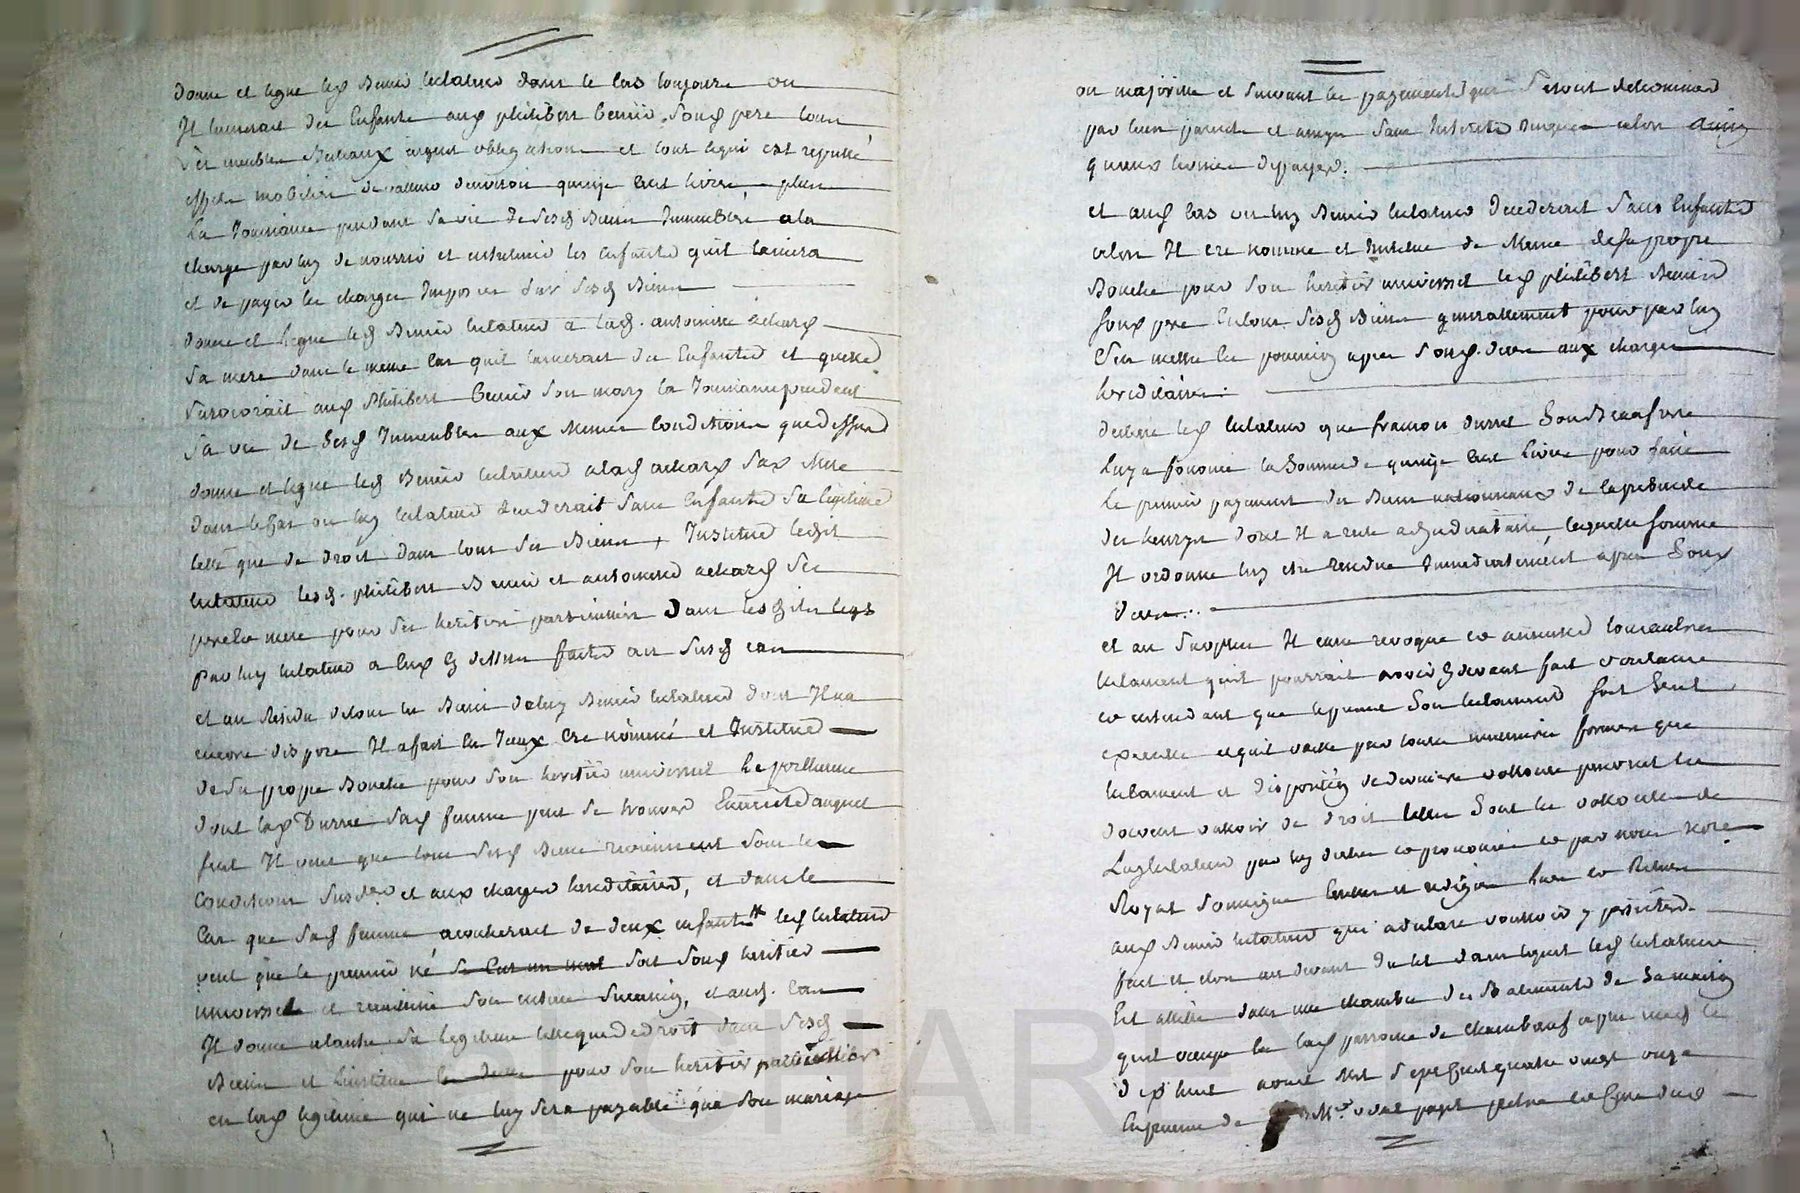 donne et legue led Benier testateur dans le cas toujours ou
Il laisserait des Enfants aud philibert benier Son pere tous
Ses meubles Bestiaux argent obligations et tout ce qui est reputté
effets mobiliers de valleur d'environ quinze cent livres plus
La Jouissance pendant Sa vie de Sesd Biens Immeubles a la
charge par luy de nourrir et entretenir les enfants quil laissera
et de payer les charges Imposées Sur Sesd Biens
donne et legue led Benier testateur a lad. antoinette achard
Sa mere dans le meme cas quil laisserait des Enfants et quelle
Survivrait aud Philibert Benier Son mary la Jouissance pendant
Sa vie de Sesd Immeubles aux Memes Conditions que dessus
donne et legue led Benier testateur a lad achard Sad Mere
dans le cas ou luy testateur decederait Sans Enfants Sa legitime
telle que de droit dans tous Ses Biens + Institue ledit
testateur lesd. philibert Benier et antoinette achard Ses
pere et mere pour Ses heritiers particuliers dans lesdits legs
par luy testateur a Eux cy dessus faits au Susd cas
et au Residu de tous les Biens de luy Benier testateur dont Il n'a
encore disposé Il a fait cree nommé et Institué
de Sa propre Bouche pour Son heritier universel le posthume
dont lad Durret Sad femme peut Se trouver Enceinte auquel
seul Il veut que tous Sesd Biens reviennent Sous les
Conditions Susd et aux charges hereditaires, et dans le
Cas que Sad femme acoucherait de deux enfants led testateur
veut que le premier né Soit Sond heritier
universel et recueille Son entiere Succession, et aud. Cas
Il donne a lautre Sa legitime telle que de droit dans Sesd
Biens et l'institue pour Son heritier particulier
en lad legitime qui ne luy Sera payable qua Son mariage
ou majorité et Suivant les payements qui Seront determinés
par leurs parents et amys Sans Interets Jusques alors
et aud cas ou luy Benier testateur decederait Sans Enfants
alors Il cree nomme et Institue de Meme de Sa propre
Bouche pour Son heritier universel led philibert Benier
Sond pere En tous Sesd Biens generallement pour par luy
Sen mettre en possession apres Sond deces aux charges
hereditaires.
declare led testateur que francois durret Son Beaufrere
luy a fourni la Somme de quinze Cent livres pour faire
le premier payement des Biens nationaux de la prebende
des dont Il a resté adjudicataire laquelle Somme
Il ordonne luy etre rendue Immediatement apres Sond
deces.
et au Surplus Il casse revoque et annulle tous autres
testament quil pourrait avoir cy devant fait voulant
et entendant que le present Son testament Soit Seul
executé et quil vaille par toutes meilleures formes que
testament et disposition de derniere volonté peuvent et
doivent valoir de droit telle Sont les volontés de
Luy testateur par luy dictées et prononcées et par nous Nore
Royal Soussigné Ecrites et redigées lues et Relues
aud Benier testateur qui a declaré vouloir y persister
fait et clos au devant du lit dans lequel led testateur
Est allitté dans une chambre des Batiments de Sa maison
quil occupe en lad parroisse de Chambœuf apres midy le
dix huit avril Mil Sept Cent quatre vingt onze
En presence de Mre pretre et Curé dud